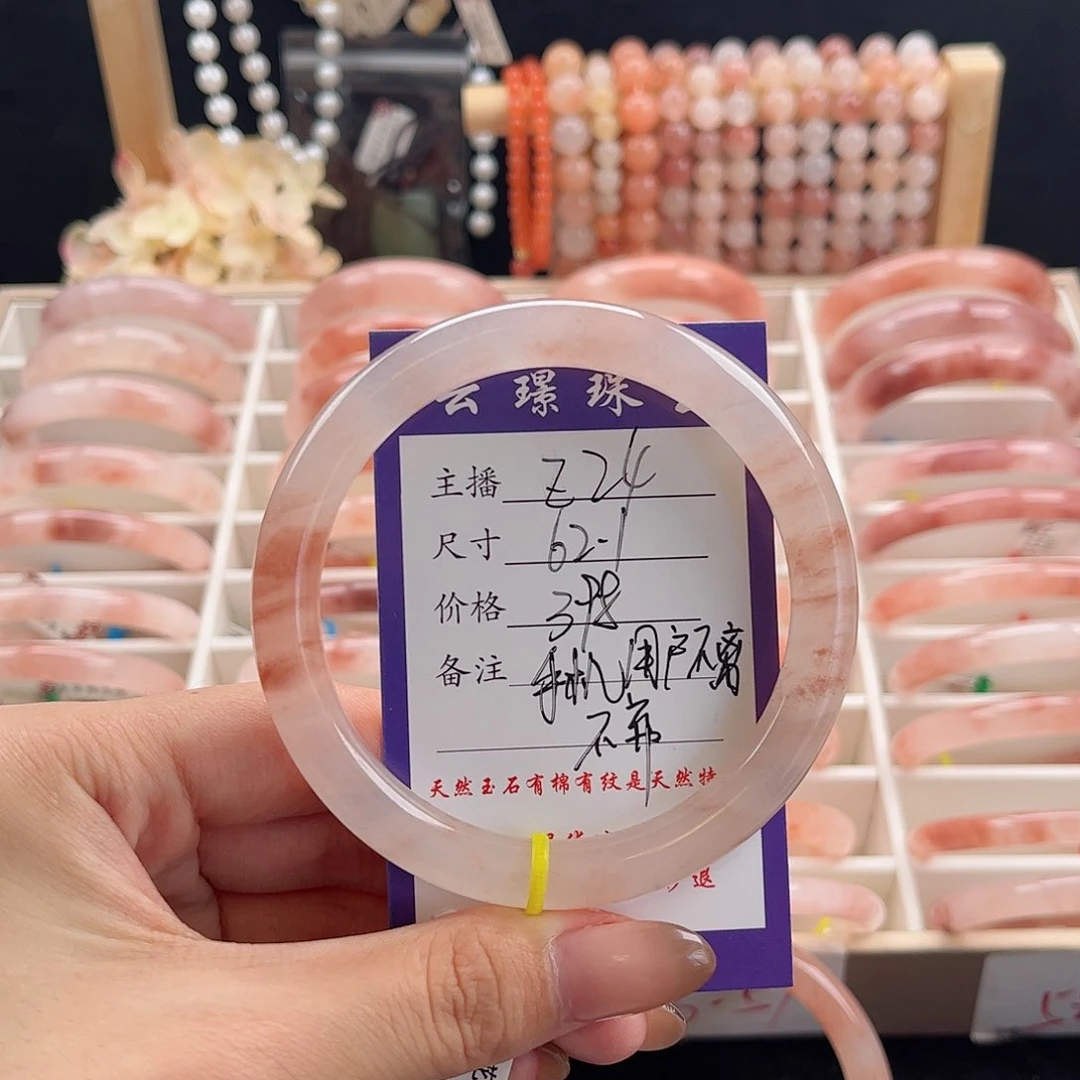 云璟珠
主播 Z24
尺寸 62-1
价格 398
备注 手机用户不离
不弃
天然玉石有棉有纹是天然特
退